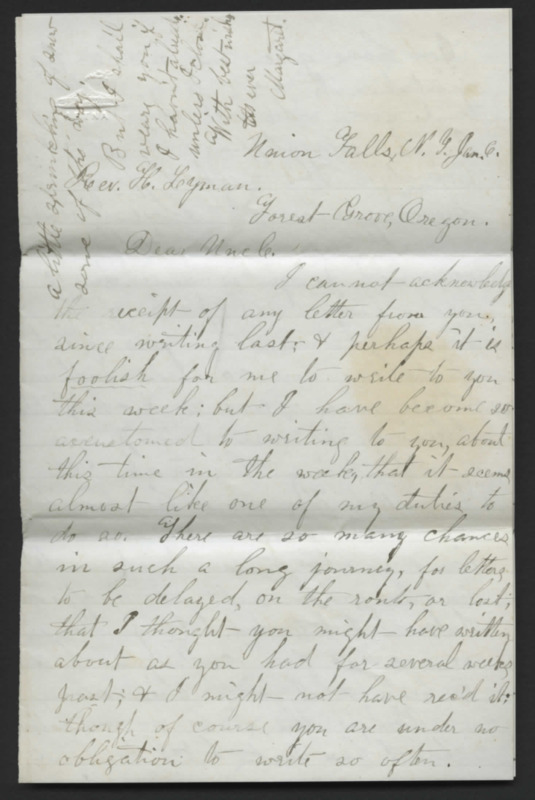 Union Falls, N. Y. Jan. 6.
Rev. H. Lyman.
Forest Grove, Oregon.
Dear Uncle.
I can not acknowledg
the receipt of any letter from you,
since writing last; & perhaps it is
foolish for me to write to you
this week; but I have become so
accustomed to writing to you, about
this time in the week, that it seems
almost like one of my duties to
do so. There are so many chances
in such a long journey, for letters
to be delayed, on the route, or lost;
that I thought you might have written
about as you had for several weeks
past; & I might not have rec'd it;
though of course you are under no
obligation to write so often.
a little sprinkling of snow
some of the day.
But I shall
weary you if
I
unless I close
With best wishes
As ever
Margaret.